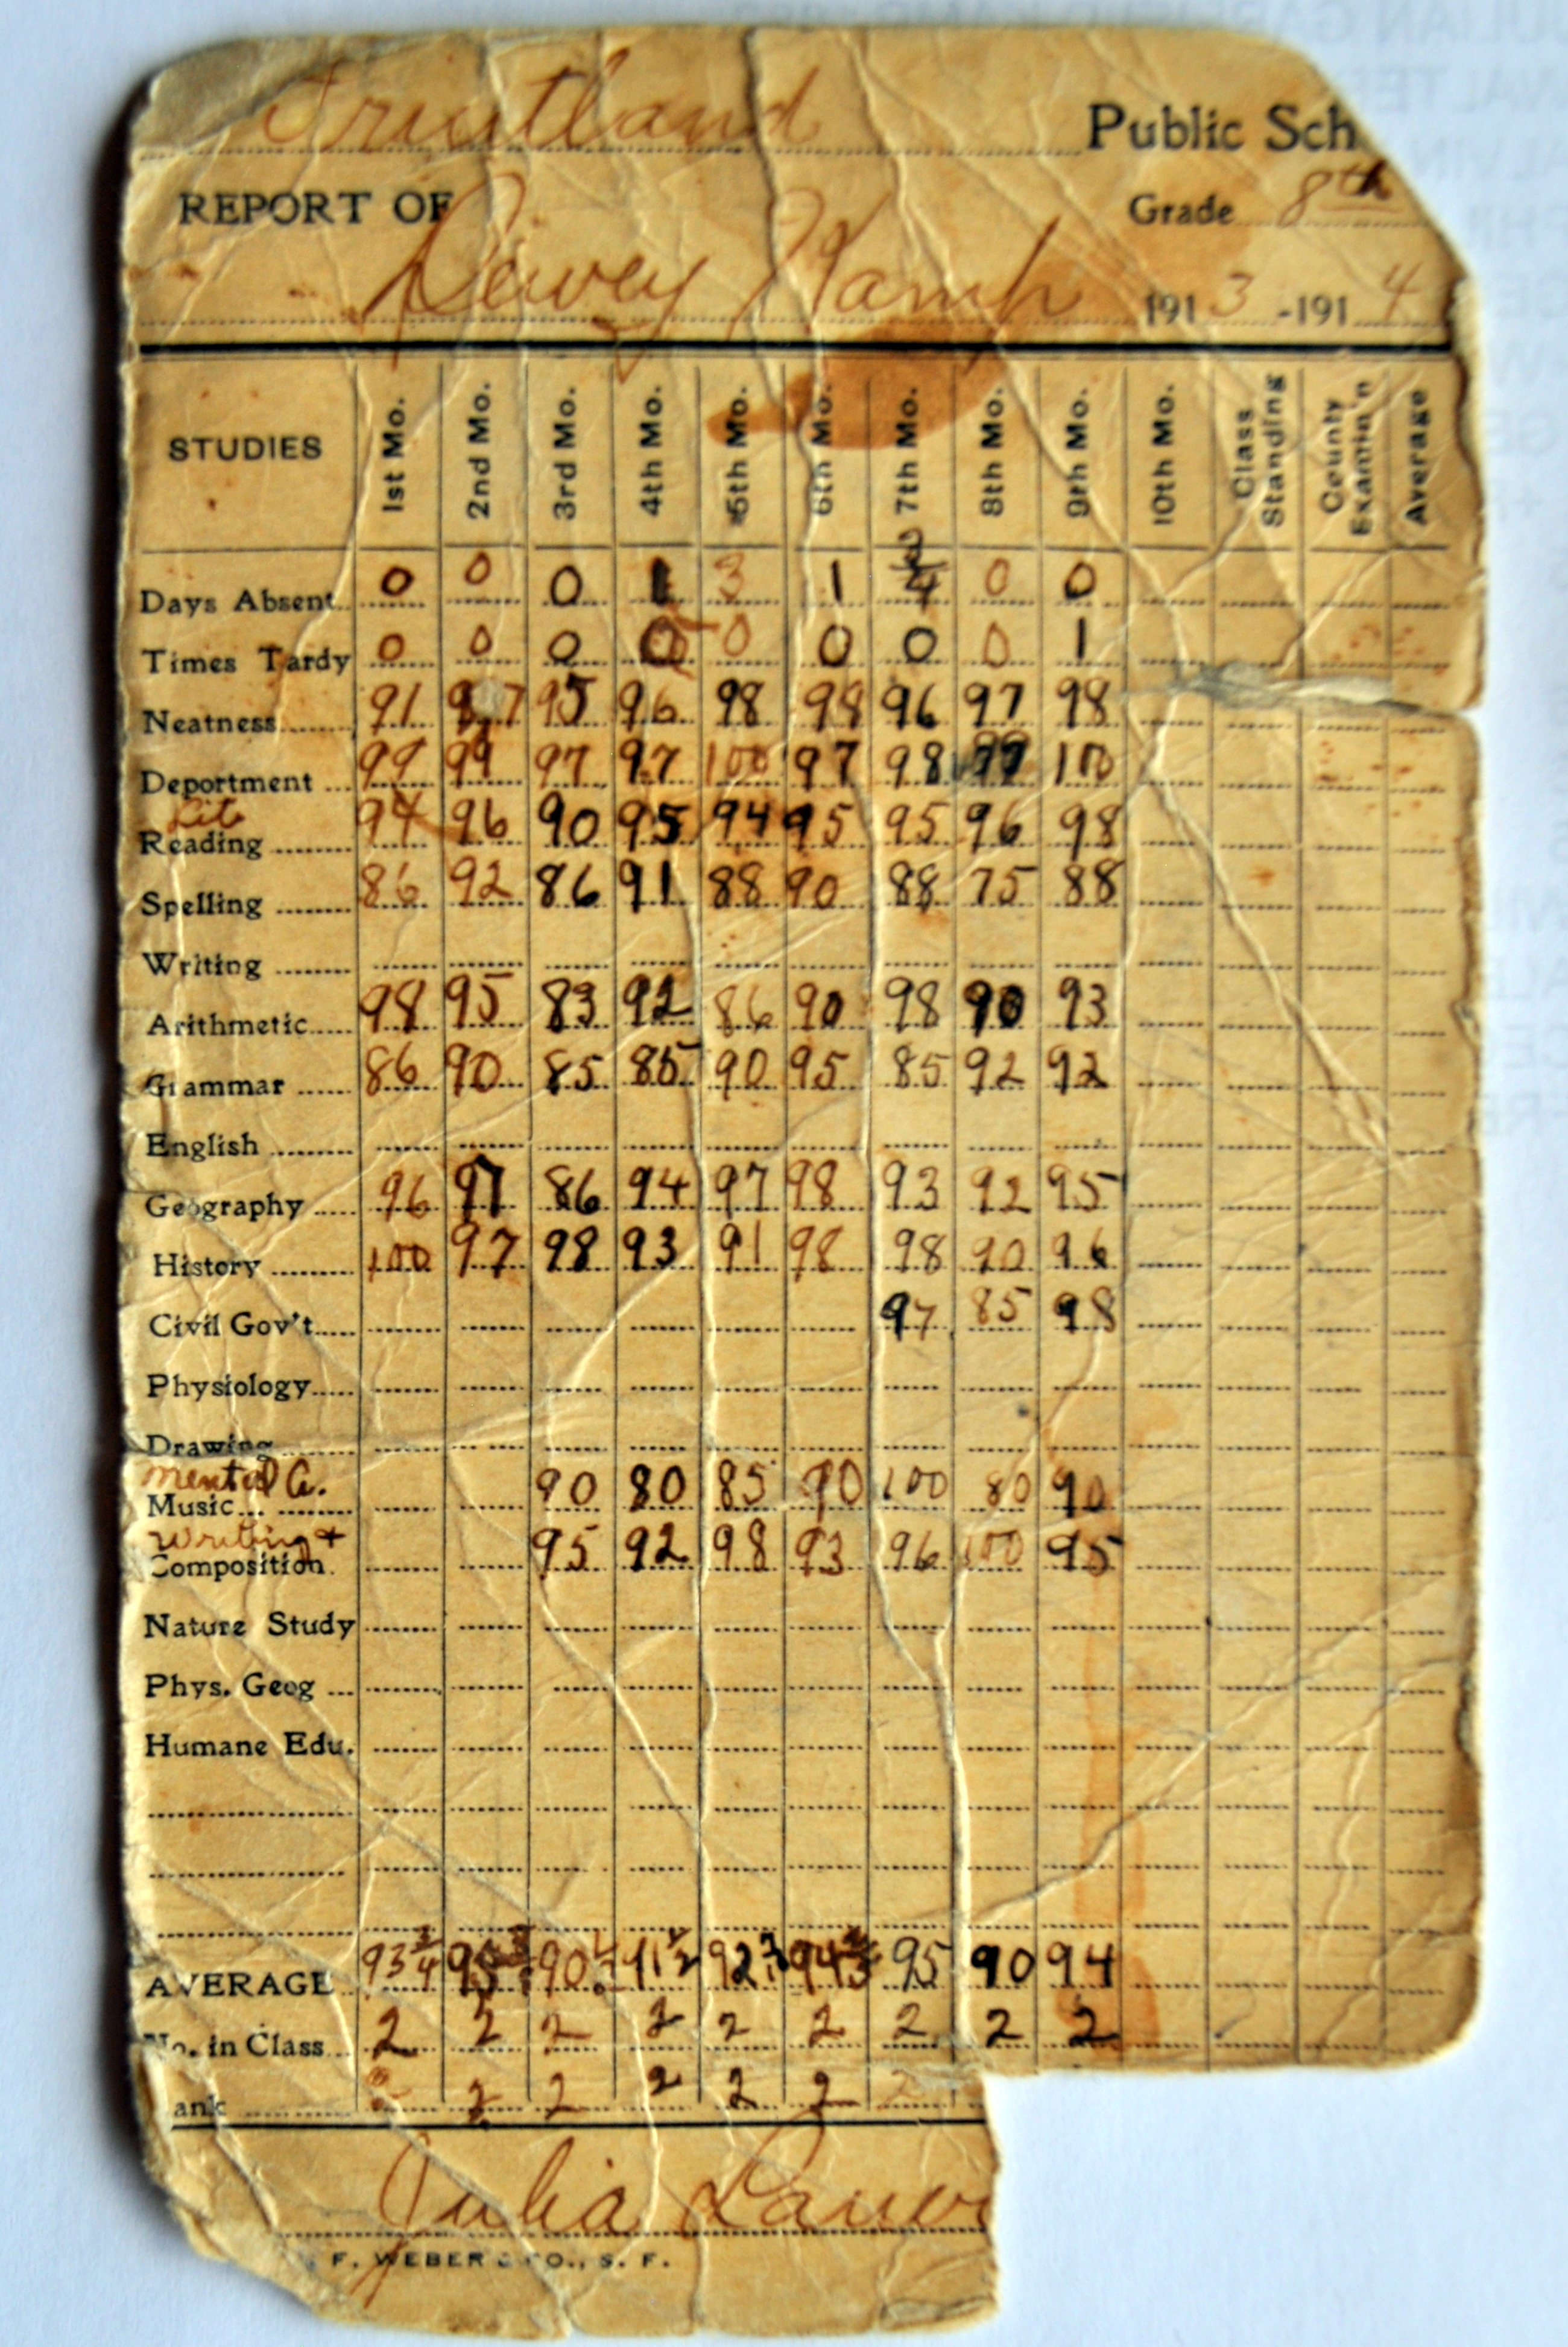 Fruitland Public Sch
REPORT OF Grade 8th
Dewey Hamp 1913-1914
STUDIES 1st Mo. 2nd Mo. 3rd Mo. 4th Mo. 5th Mo. 6th Mo. 7th Mo. 8th Mo. 9th Mo. 10th Mo. Class Standing County Examin'n Average
Days Absent 0 0 0 1 3 1 3/4 0 0
Times Tardy 0 0 0 0 0 0 0 0 1
Neatness 91 97 95 96 98 98 96 97 98
Deportment 99 99 97 97 100 97 98 99 100
Lit
Reading 94 96 90 95 94 95 95 96 98
Spelling 86 92 86 91 88 90 88 75 88
Writing
Arithmetic 98 95 83 92 86 90 98 90 93
Grammar 86 90 85 85 90 95 85 92 92
English
Geography 96 97 86 94 97 98 93 92 95
History 100 97 98 93 91 98 98 90 96
Civil Gov't 97 85 98
Physiology
Drawing
Mental A.
Music 90 80 85 90 100 80 90
Writing +
Composition 95 92 98 93 96 100 95
Nature Study
Phys. Geog
Humane Edu.
AVERAGE 93 3/4 95 90 91 1/2 92 94 95 90 94
No. in Class 2 2 2 2 2 2 2 2 2
ank 2 2 2 2 2 2
Julia
F. WEBER & CO., S. F.